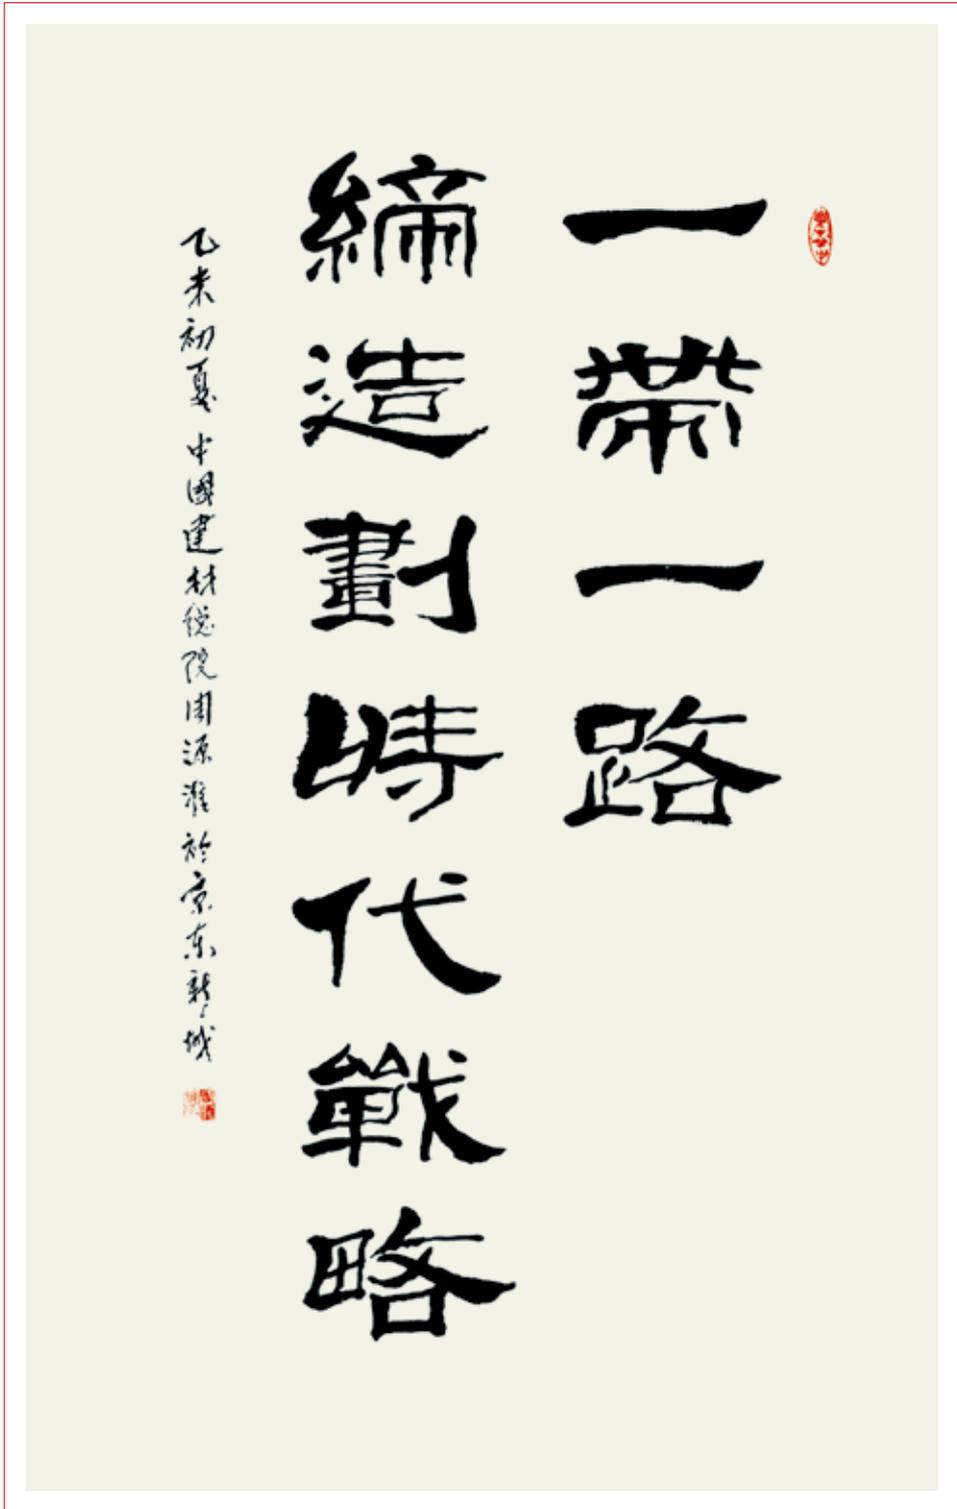 一帶一路
締造劃時代戰略
乙未初夏 中國建材總院周源淮於京東新城